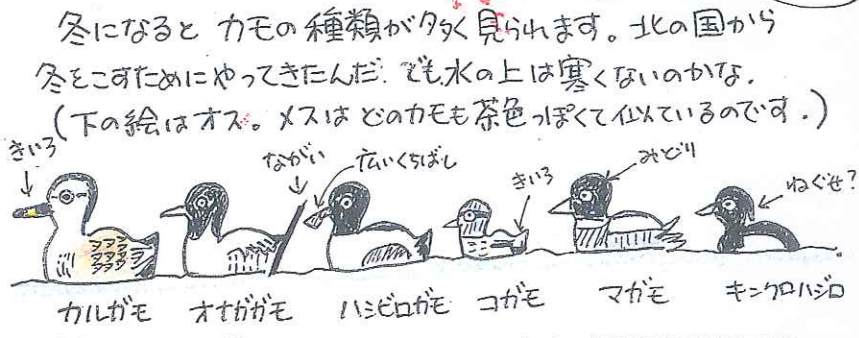 冬になると カモの種類が多く見られます。北の国から
冬をこすためにやってきたんだ。でも水の上は寒くないのかな.
(下の絵はオス。メスはどのカモも茶色っぽくて似ているのです.)
きいろ
ながい
広いくちばし
きいろ
みどり
ねぐせ?
カルガモ オナガガモ ハシビロガモ コガモ マガモ キンクロハジロ